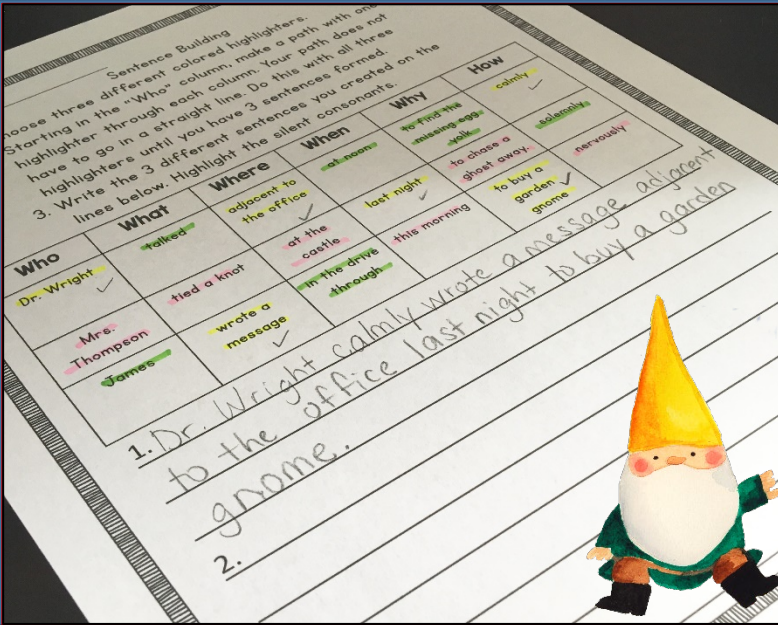 Sentence Building
hoose three different colored highlighters.
Starting in the "Who" column, make a path with one
highlighter through each column. Your path does not
have to go in a straight line. Do this with all three
highlighters until you have 3 sentences formed.
3. Write the 3 different sentences you created on the
lines below. Highlight the silent consonants.
Who What Where When Why How
Dr. Wright
talked
adjacent to
the office
at noon
to find the
missing egg
yolk
calmly
Mrs.
Thompson
tied a knot
at the
castle
last night
to chase a
ghost away
solemnly
James
wrote a
message
in the drive
through
this morning
to buy a
garden
gnome
nervously
1. Dr. Wright calmly wrote a message adjacent
to the office last night to buy a garden
gnome.
2.